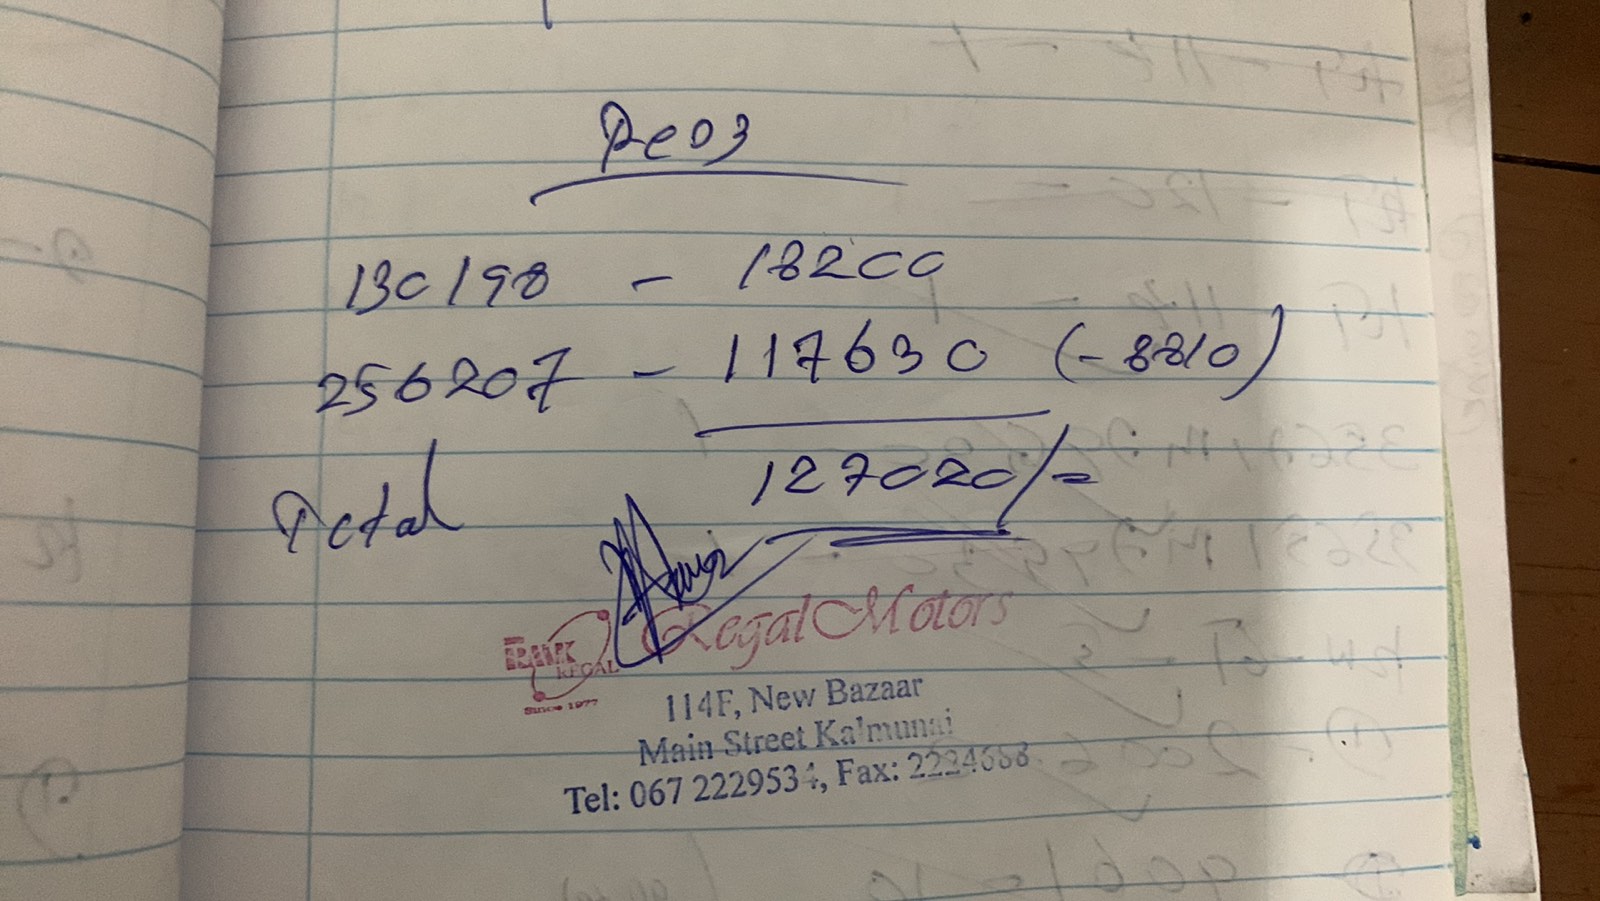 Pe03
130198 - 18200
256207 - 117630 (-8810)
Total 127020/=
Regal Motors
REGAL
Since 1977
114F, New Bazaar
Main Street Kalmunai
Tel: 067 2229534, Fax: 2224688